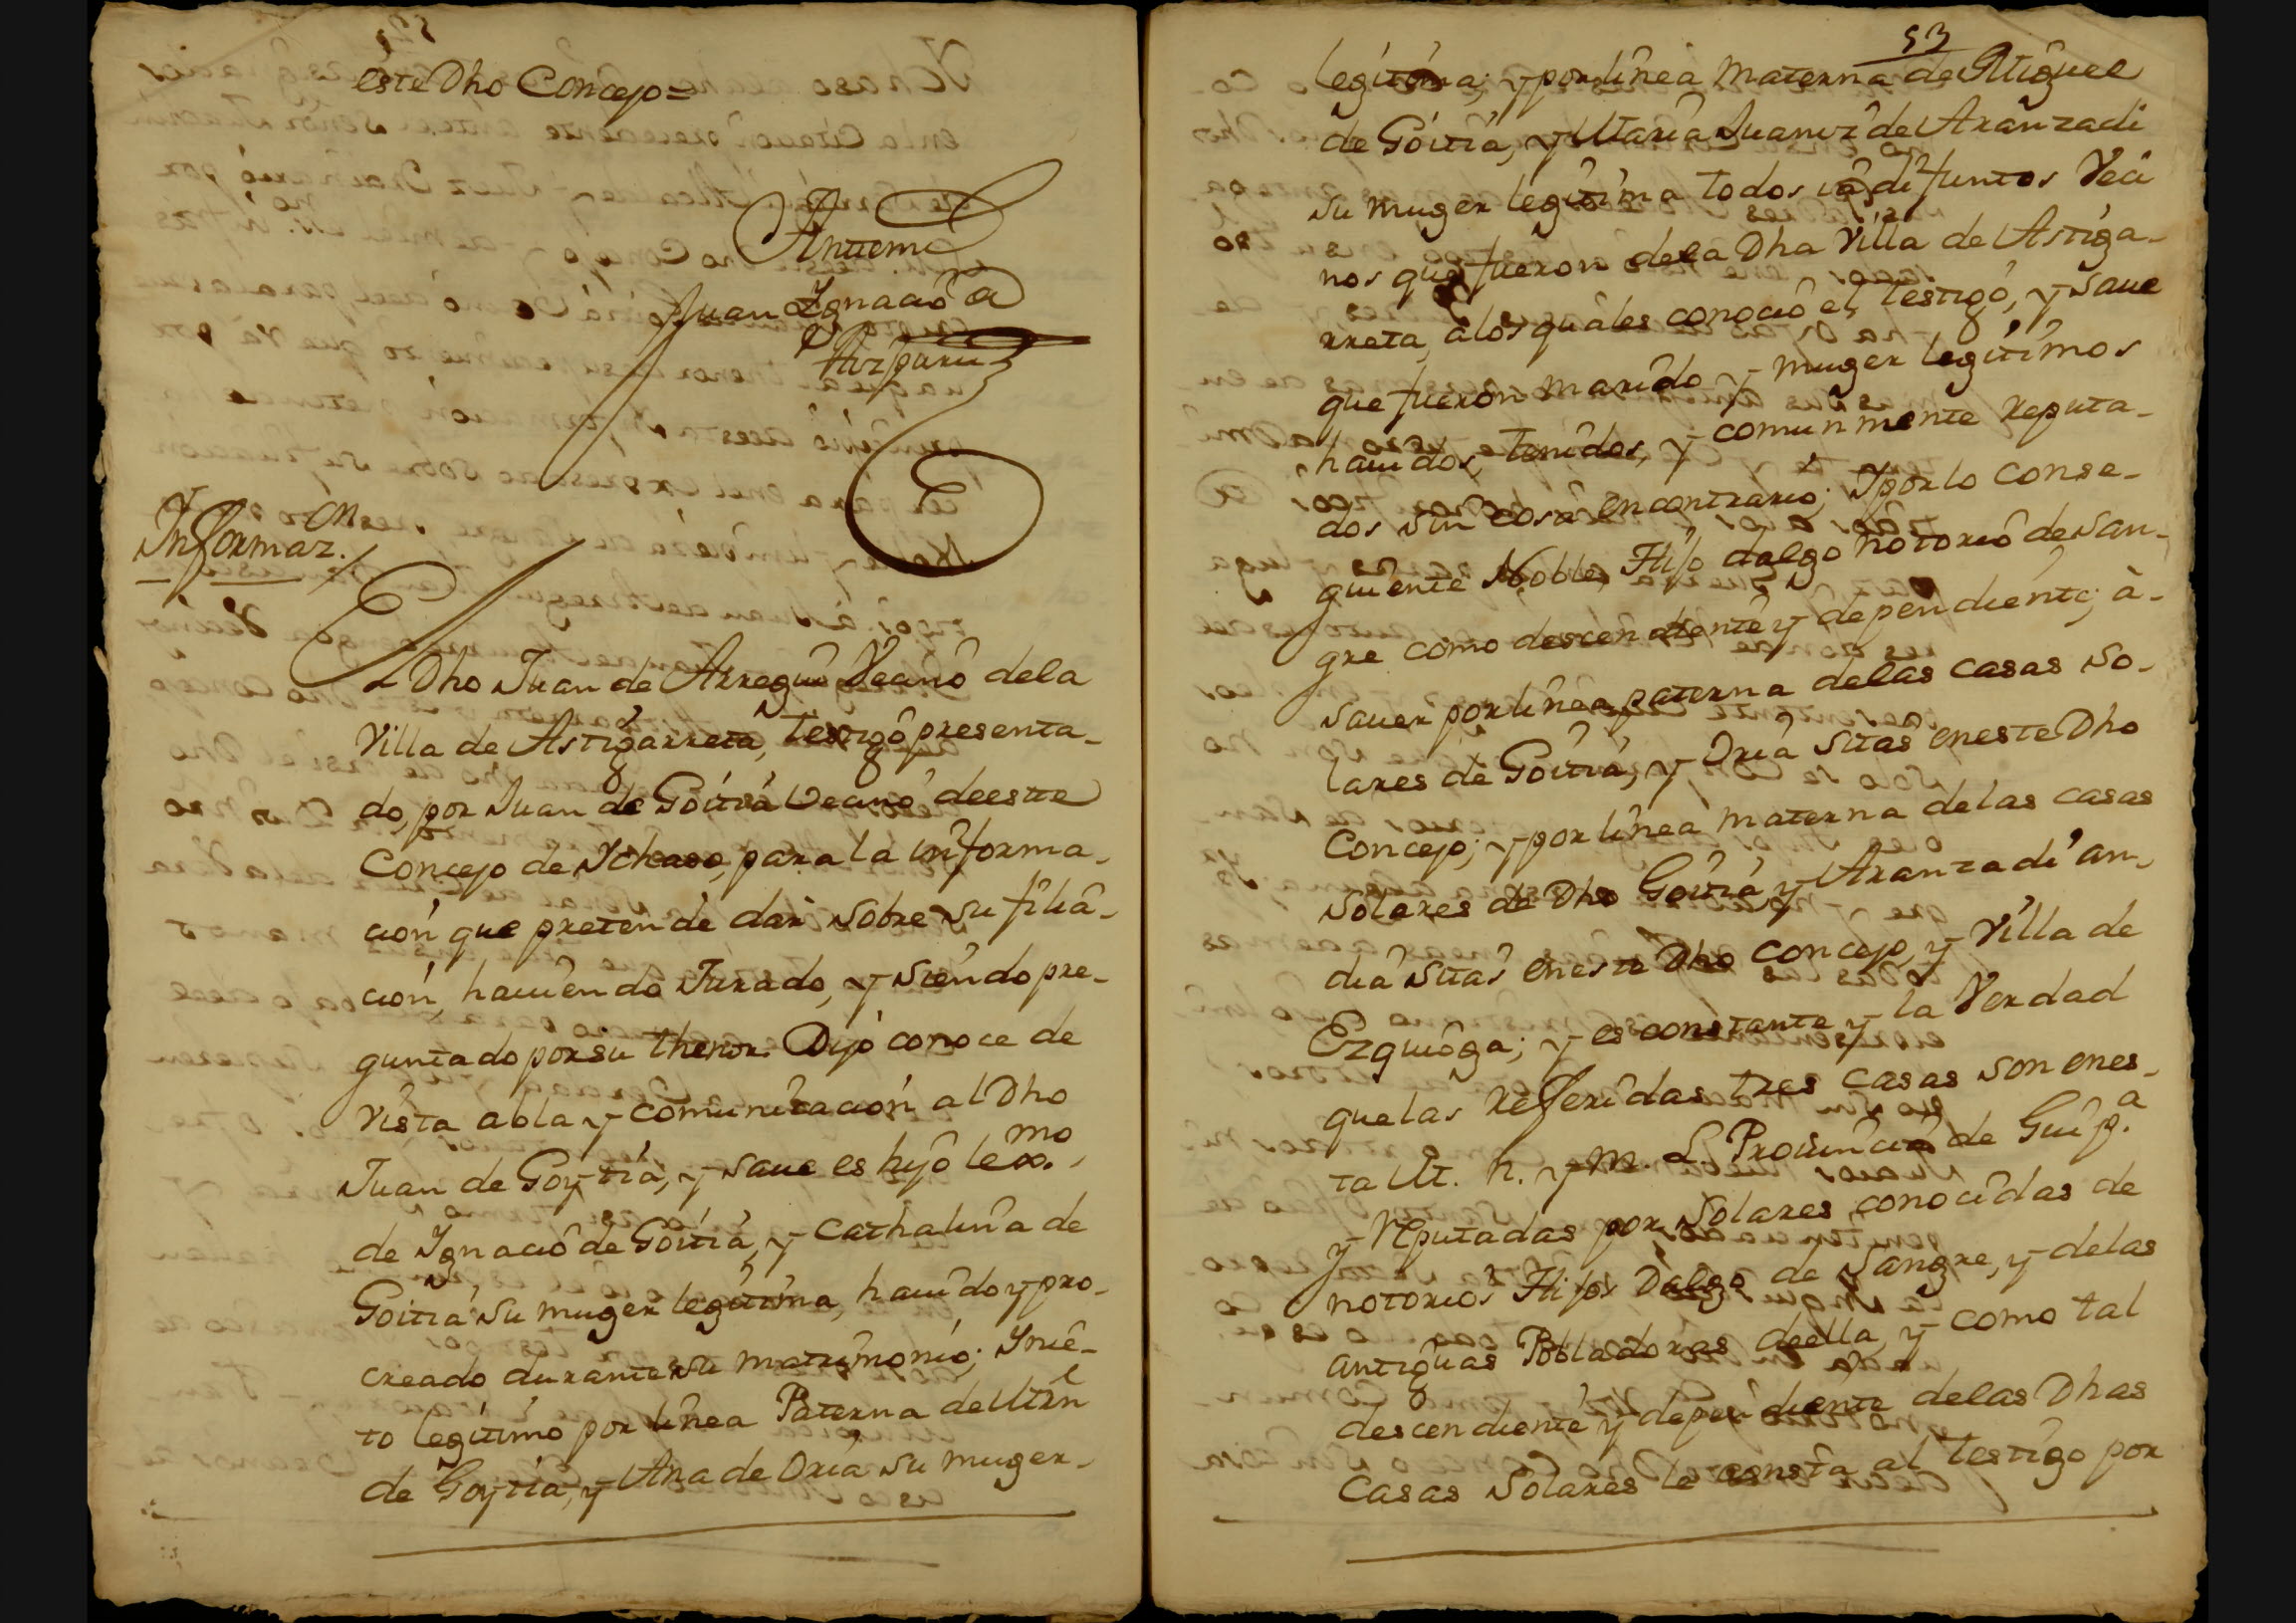 este Dho Concejo =
Antemi
Juan Ignacio de
Aizpuru
Informaz.on
El Dho Juan de Arregui Vecino dela
Villa de Astigarreta, testigo presenta-
do, por Juan de Goitia vecino deeste
Concejo de Ychaso, para la informa-
ción que pretende dar sobre su filia-
ción, haviendo Jurado, y siendo pre-
guntado por su thenor. Dijo conoce de
vista abla y comunicación al Dho
Juan de Goytia, y save es hijo lexmo.
de Ignacio de Goitia, y Cathalina de
Goitia su muger legitima, havido y pro-
creado durante su matrimonio; Ynie-
to legitimo por linea Paterna de Mrn
de Goytia, y Ana de Oria su muger
53
legitima; y por linea Materna de Miguel
de Goitia, y Maria Juaniz de Aranzadi
su muger legitima todos ya difuntos Veci
nos que fueron dela Dha Villa de Astiga-
rreta, alos quales conocio el testigo, y save
que fueron marido y muger legitimos
havidos, tenidos, y comunmente reputa-
dos sin cosa encontrario; Y por lo conse-
guiente Noble, Hijo dalgo notorio de san-
gre como descendiente y dependiente, à-
saver por linea paterna delas casas so-
lares de Goitia, y Oria sitas eneste Dho
Concejo; y por linea materna delas casas
solares de Dho Goitia y Aranzadi an-
dia sitas eneste Dho concejo, y Villa de
Ezquioga; y es constante y la Verdad
quelas referidas tres casas son enes-
ta M. N. y M. L. Provincia de Guip.a
y Reputadas por Solares conocidas de
notorios Hijos Dalgo de Sangre, y delas
antiguas Pobladoras deella, y como tal
descendiente y dependiente delas Dhas
Casas Solares le consta al testigo por